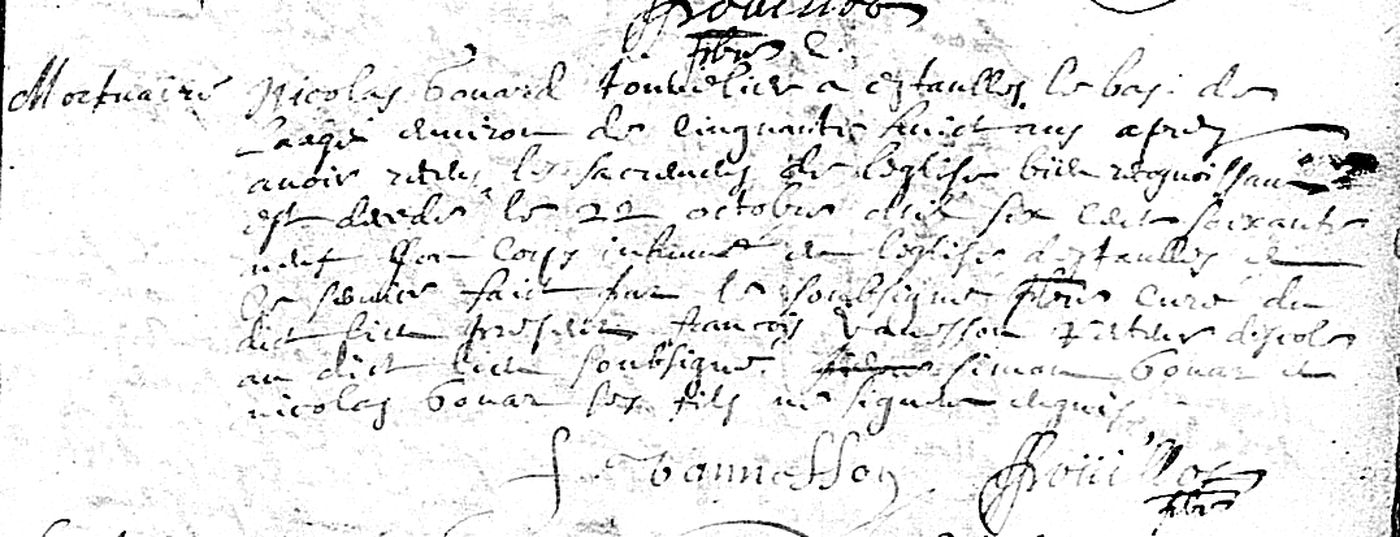 Mortuaire Nicolas Gouard tonnelier a Estaulles le bas de
l aage environ de cinquante huict ans apres
avoir receu les sacremens de l'eglise bien recognoissant
est decedé le 22 octobre mil six cent soixante
neuf son corps inhumé en l'eglise d'Estaulles et
le service faict par le soubsigné pbre curé du
dict lieu present francois Vannesson d'escole
au dict lieu soubsigné simon Gouar et
nicolas Gouar ses fils ne signent requis
f. Vannesson Rouillot
pbre